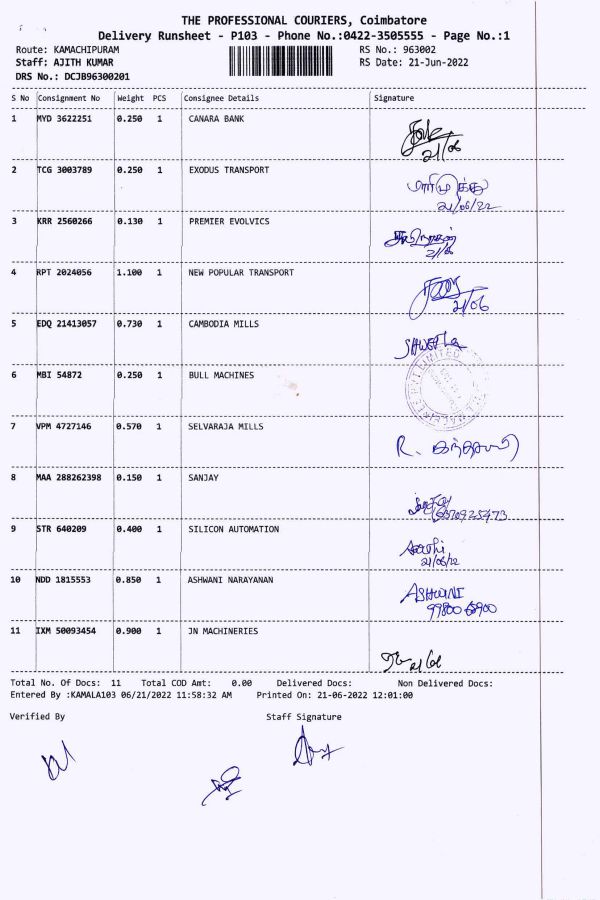 THE PROFESSIONAL COURIERS, Coimbatore
Delivery Runsheet - P103 - Phone No.:0422-3505555 - Page No.:1
Route: KAMACHIPURAM RS No.: 963002
Staff: AJITH KUMAR RS Date: 21-Jun-2022
DRS No.: DCJB96300201
S No Consignment No Weight PCS Consignee Details Signature
1 MYD 3622251 0.250 1 CANARA BANK
21/06
2 TCG 3003789 0.250 1 EXODUS TRANSPORT
மாரிமுத்து
21/06/22
3 KRR 2560266 0.130 1 PREMIER EVOLVICS
21/6
4 RPT 2024056 1.100 1 NEW POPULAR TRANSPORT
21/06
5 EDQ 21413057 0.730 1 CAMBODIA MILLS
SHWETHA
LIMITED
6 MBI 54872 0.250 1 BULL MACHINES
7 VPM 4727146 0.570 1 SELVARAJA MILLS
R. கந்தசாமி
8 MAA 288262398 0.150 1 SANJAY
9 STR 640209 0.400 1 SILICON AUTOMATION
21/06/22
10 NDD 1815553 0.850 1 ASHWANI NARAYANAN
ASHWANI
11 IXM 50093454 0.900 1 JN MACHINERIES
Total No. Of Docs: 11 Total COD Amt: 0.00 Delivered Docs: Non Delivered Docs:
Entered By :KAMALA103 06/21/2022 11:58:32 AM Printed On: 21-06-2022 12:01:00
Verified By Staff Signature